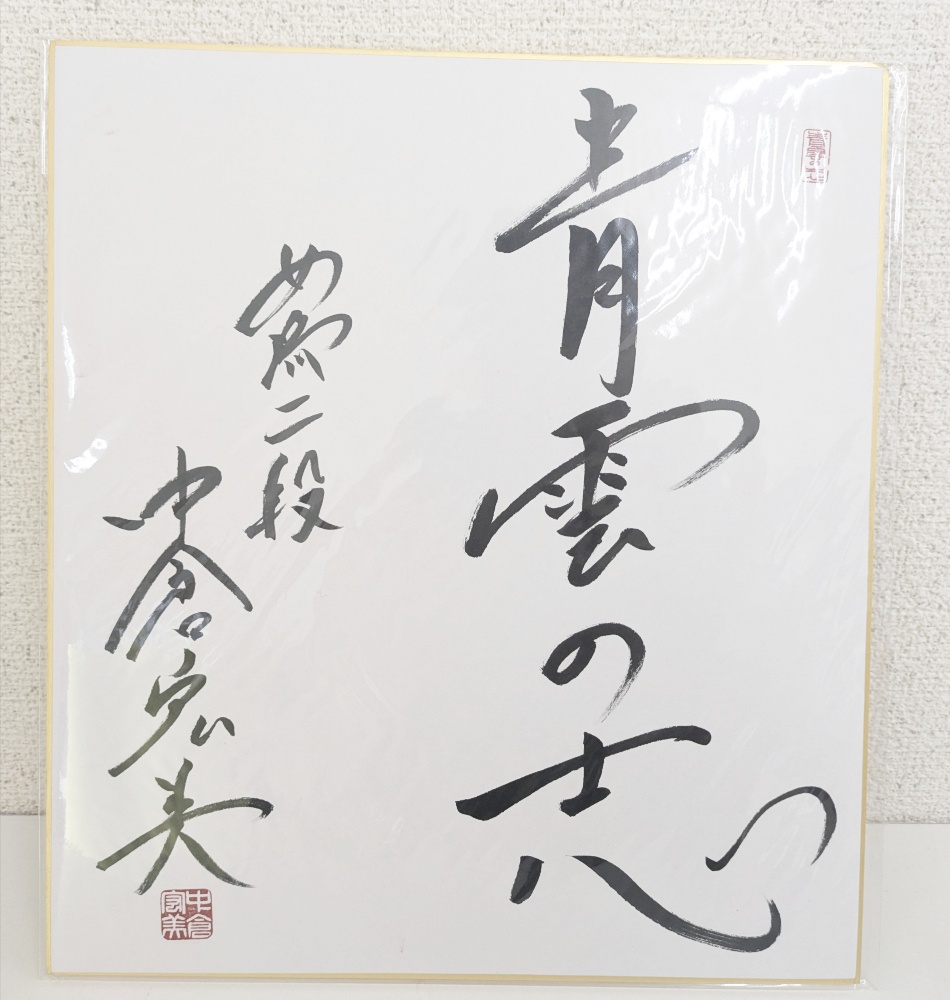 青雲の志
女流二段
中倉宏美
中倉宏美